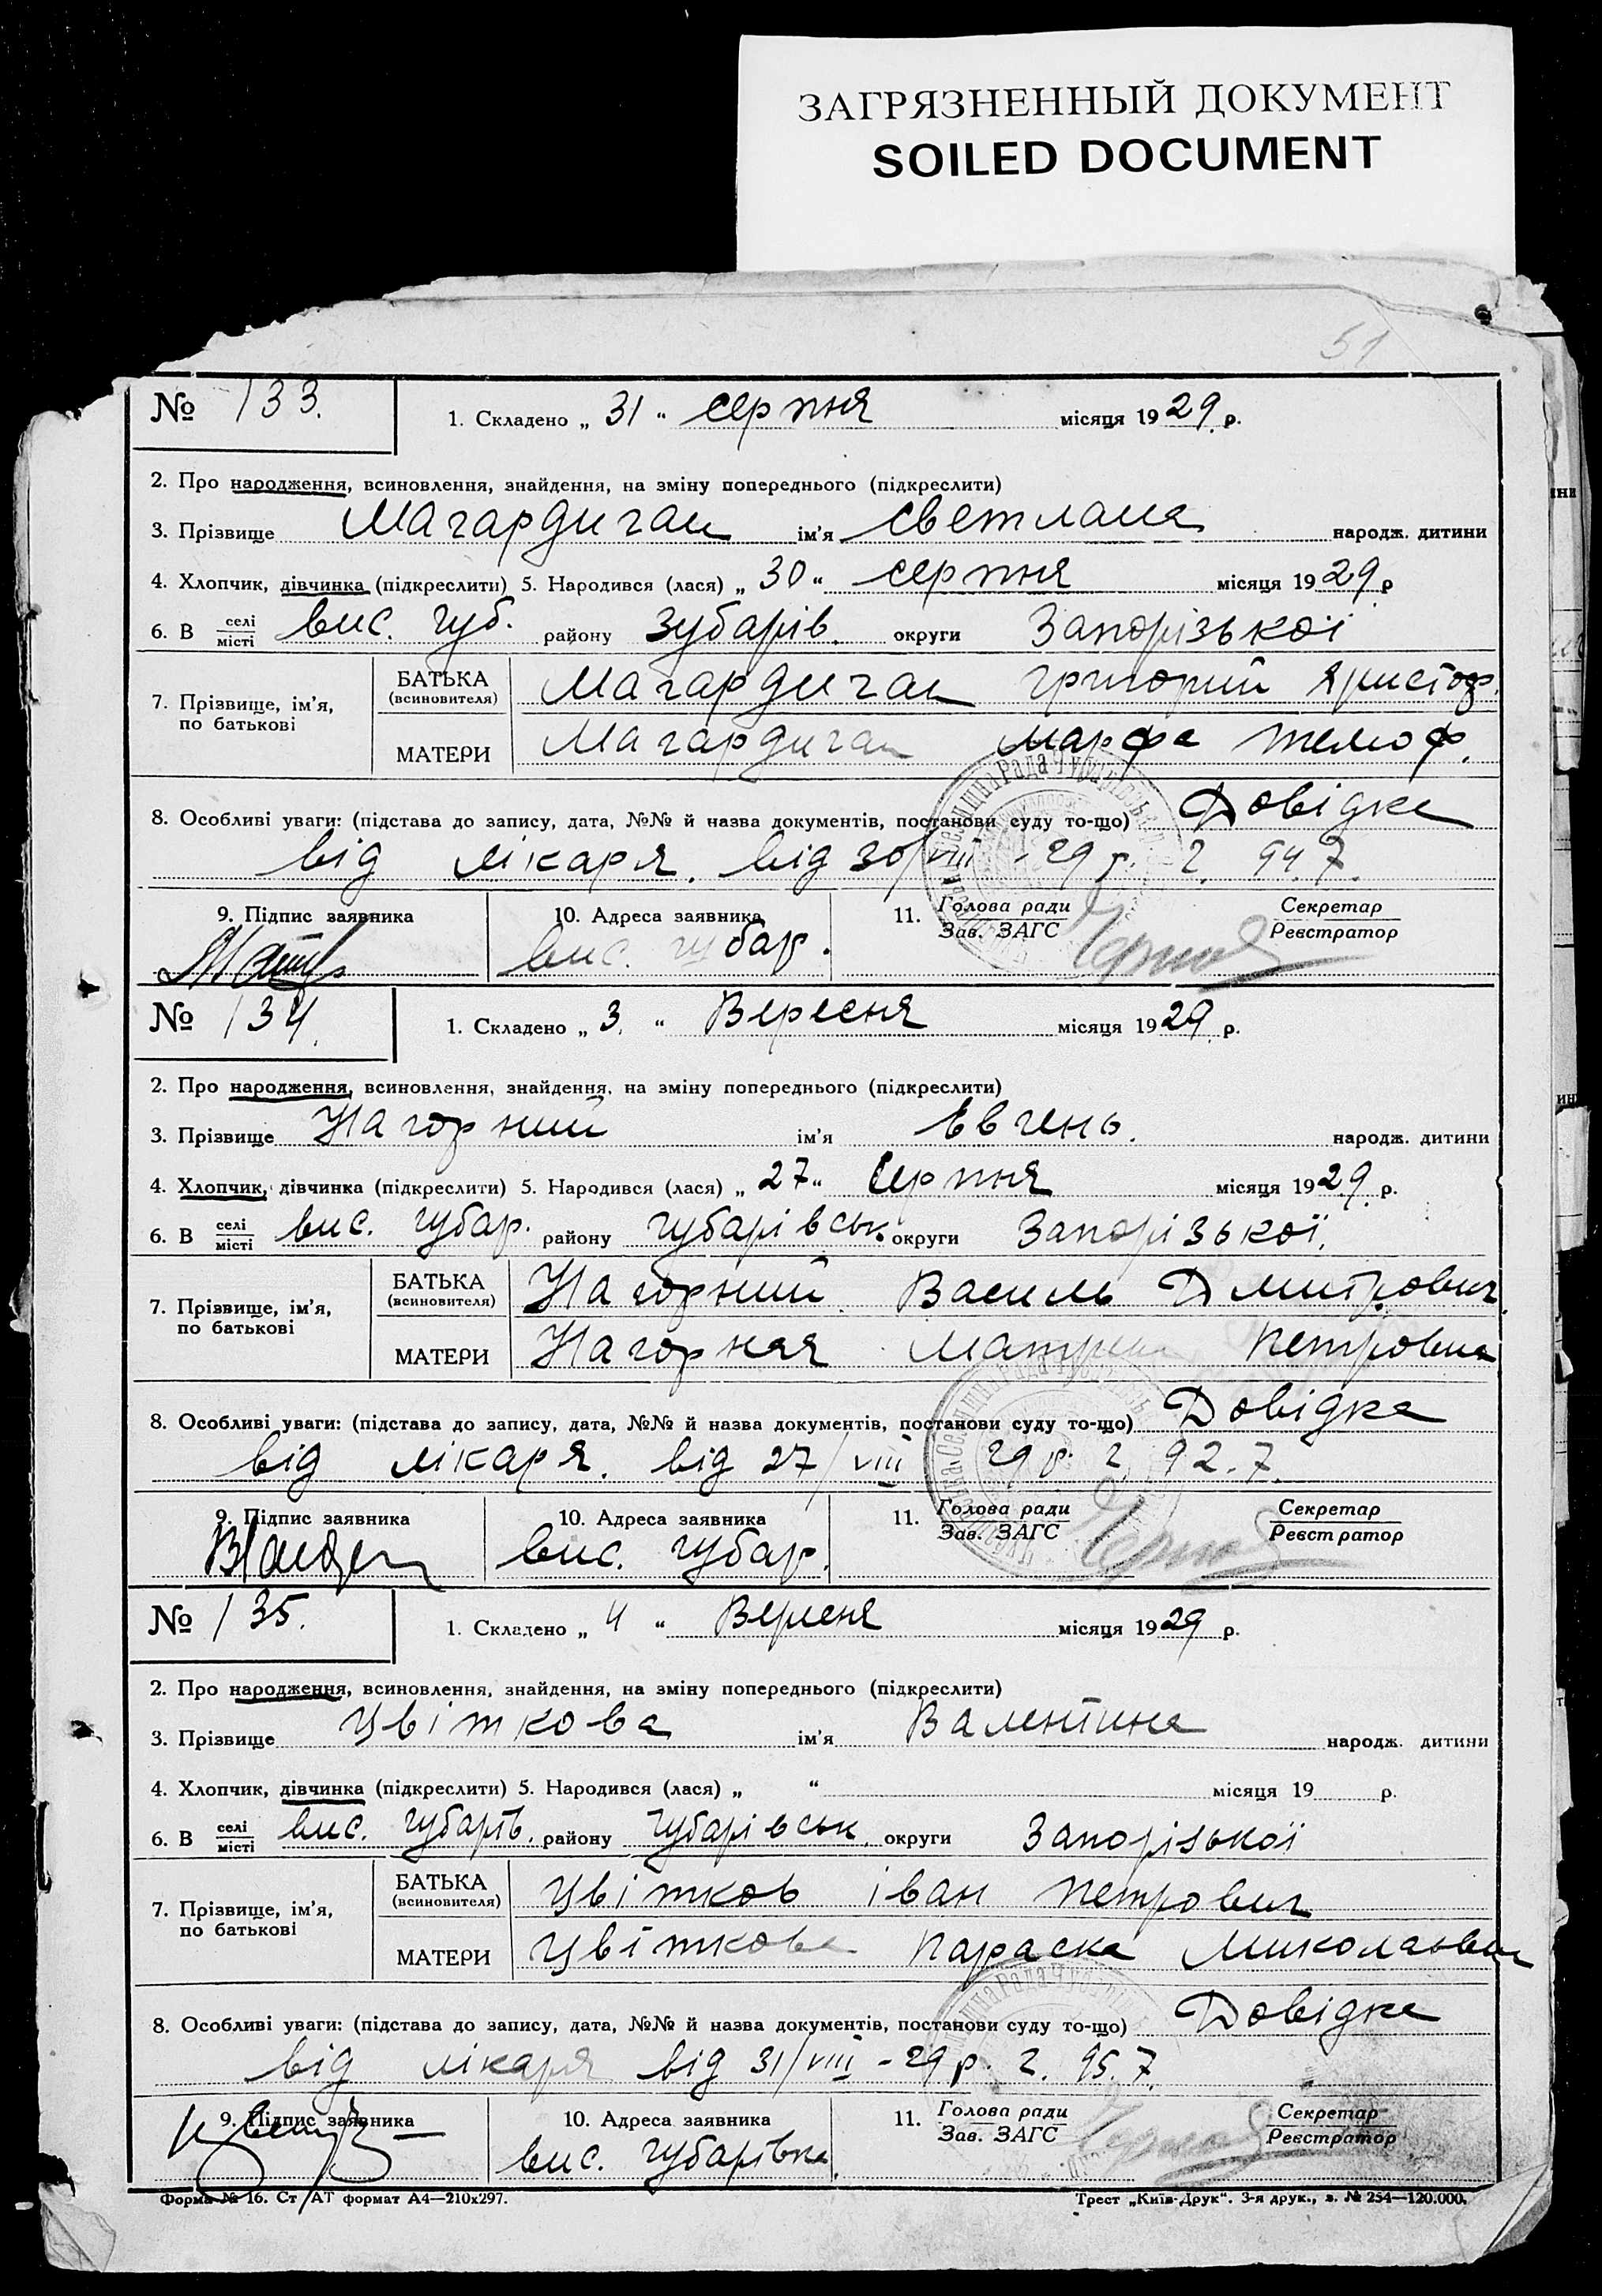 ЗАГРЯЗНЕННЫЙ ДОКУМЕНТ
SOILED DOCUMENT
51
№ 133.
1. Складено „ 31 “ серпня місяця 1929 р.
2. Про народження, всиновлення, знайдення, на зміну попереднього (підкреслити)
3. Прізвище Магардичан ім'я Светлана народж. дитини
4. Хлопчик, дівчинка (підкреслити) 5. Народився (лася) „ 30 “ серпня місяця 1929 р
6. В селі місті вис. Чуб. району Зубарів. округи Запорізької
7. Прізвище, ім'я, по батькові
БАТЬКА (всиновителя) Магардичан Григорий Христоф.
МАТЕРИ Магардичан Марфа Тимоф.
8. Особливі уваги: (підстава до запису, дата, №№ й назва документів, постанови суду то-що) Довідка
від лікаря. від 30/VIII - 29 р. 2. 94.7.
9. Підпис заявника
10. Адреса заявника вис. Чубар.
11. Голова ради Зав. ЗАГС
Секретар Реєстратор
№ 134.
1. Складено „ 3. “ Вересня місяця 1929 р.
2. Про народження, всиновлення, знайдення, на зміну попереднього (підкреслити)
3. Прізвище Нагорний ім'я Евгень. народж. дитини
4. Хлопчик, дівчинка (підкреслити) 5. Народився (лася) „ 27 “ Серпня місяця 1929 р.
6. В селі місті вис. Чубар. району Чубарівськ. округи Запорізької.
7. Прізвище, ім'я, по батькові
БАТЬКА (всиновителя) Нагорний Василь Дмитрович
МАТЕРИ Нагорная Матрена Петровна
8. Особливі уваги: (підстава до запису, дата, №№ й назва документів, постанови суду то-що) Довідка
від лікаря. від 27/VIII 29 р. 2. 92.7.
9. Підпис заявника
10. Адреса заявника вис. Чубар.
11. Голова ради Зав. ЗАГС
Секретар Реєстратор
№ 135.
1. Складено „ 4 “ Вересня місяця 1929 р.
2. Про народження, всиновлення, знайдення, на зміну попереднього (підкреслити)
3. Прізвище Цвіткова ім'я Валентина народж. дитини
4. Хлопчик, дівчинка (підкреслити) 5. Народився (лася) „ “ місяця 19 р.
6. В селі місті вис. Чубарів. району Чубарівськ. округи Запорізької
7. Прізвище, ім'я, по батькові
БАТЬКА (всиновителя) Цвітков Іван Петрович
МАТЕРИ Цвіткова Параска Миколаевна
8. Особливі уваги: (підстава до запису, дата, №№ й назва документів, постанови суду то-що) Довідка
від лікаря від 31/VIII - 29 р. 2. 95.7.
9. Підпис заявника
10. Адреса заявника вис. Чубарівка.
11. Голова ради Зав. ЗАГС
Секретар Реєстратор
Форма № 16. Ст АТ формат А4—210x297.
Трест „Київ-Друк“. 3-я друк., з. № 254—120.000.